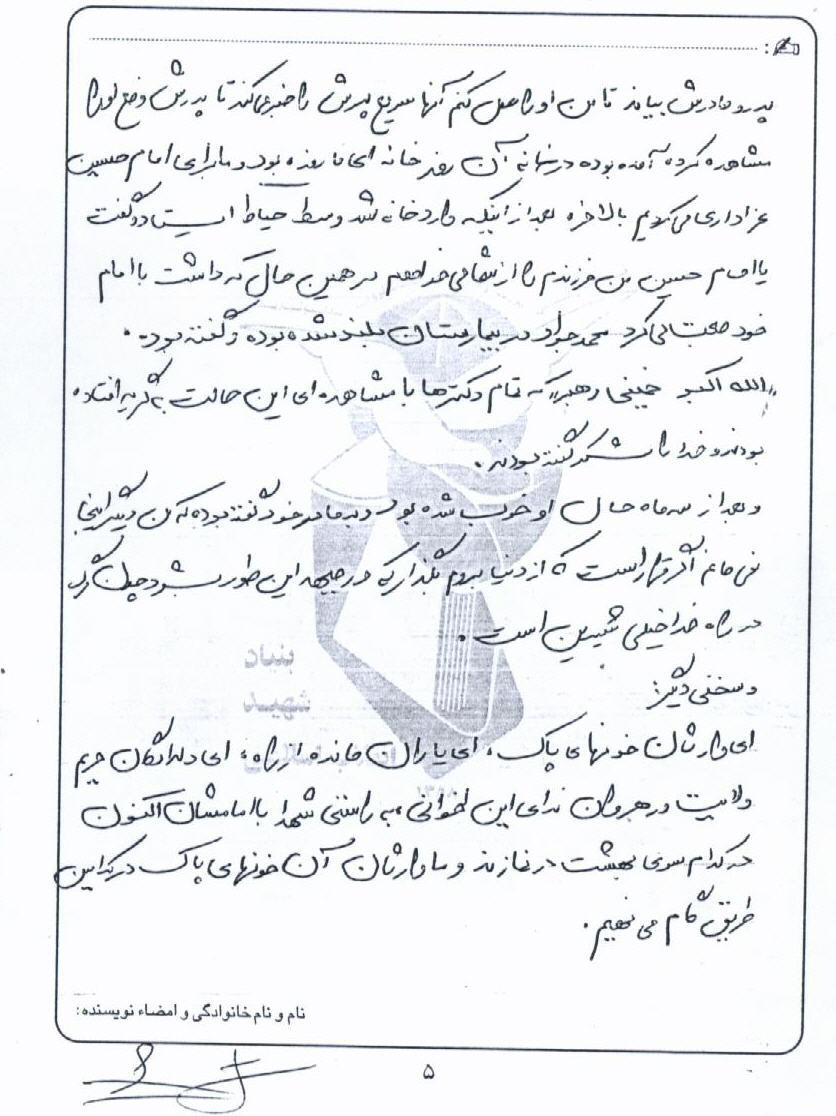 پدر و مادرش بیایند تا من او را عمل کنم آنها سریع پدرش را خبر می‌کنند تا پدرش وضع او را
مشاهده کرده آمده بوده در خانه آن روز خانه ای ما روزه بود و ما برای امام حسین
عزاداری می کردیم بالاخره بعد از اینکه وارد خانه شد وسط حیاط ایستاد و گفت
یا امام حسین من فرزندم را از شما می خواهم در همین حال که داشت با امام
خود صحبت می کرد محمد جواد در بیمارستان بلند شده بوده و گفته بود.
"الله اکبر خمینی رهبر" که تمام دکترها با مشاهده ای این حالت به گریه افتاده
بودند و خدا را شکر گفته بودند.
و بعد از سه ماه حال او خوب شده بود و به مادر خود گفته بوده که من دیگر اینجا
نمی مانم اگر قرار است که از دنیا بروم بگذار که در جبهه این طور بشود چون مرگ
در راه خدا خیلی شیرین است.
و سخنی دیگر:
ای وارثان خونهای پاک، ای یاران مانده از راه، ای دلدادگان حریم
ولایت و رهروان ندای این اخوانی، به راستی شهدا با امامشان اکنون
در کدام سوی بهشت در نمازند و ما وارثان آن خونهای پاک در کدامین
طریق گام می نهیم.
بنیاد
شهید
نام و نام خانوادگی و امضاء نویسنده:
۵